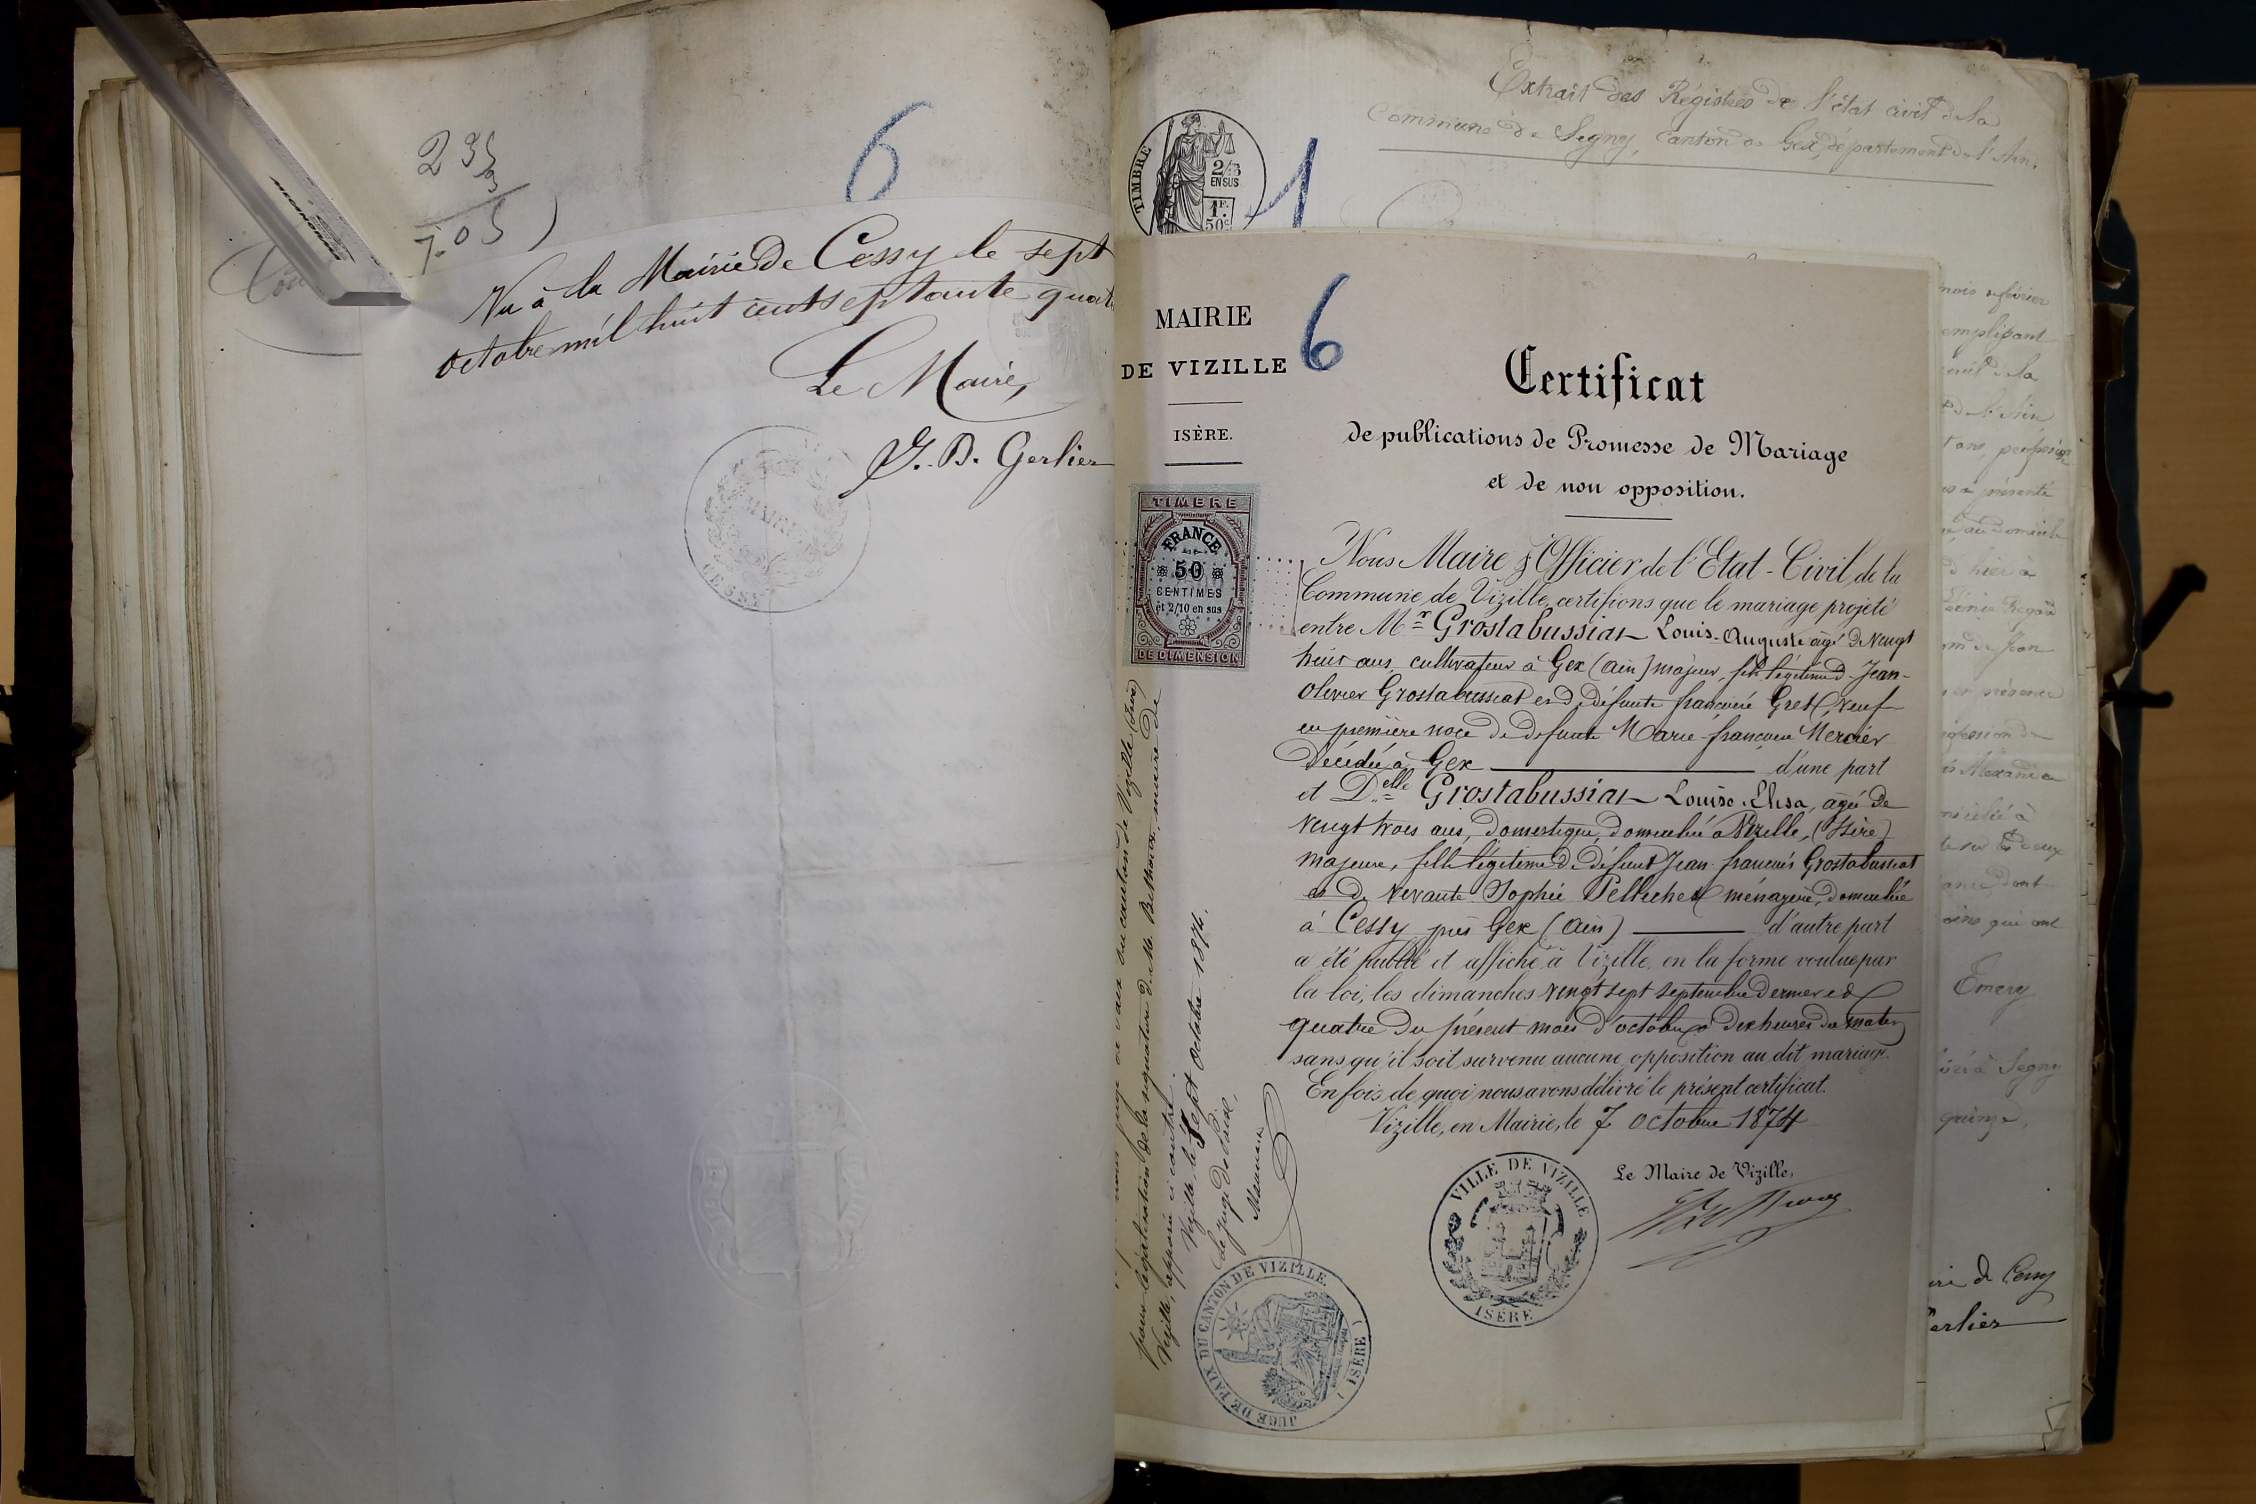 6
Vu à la Mairie de Cessy le sept
octobre mil huit cent septante quat
Le Maire,
J. B. Gerlier
MAIRIE
CESSY
Extrait des Régistres de l'état civil de la
Commune de Segny, canton de Gex, département de l'Ain.
TIMBRE
2/10
EN SUS
1F.
50c.
1
MAIRIE
DE VIZILLE
ISÈRE.
6
TIMBRE
FRANCE
50
CENTIMES
et 2/10 en sus
DE DIMENSION
Certificat
de publications de Promesse de Mariage
et de non opposition.
Nous Maire & Officier de l'Etat-Civil de la
Commune de Vizille, certifions que le mariage projeté
entre Mr Grostabussiat Louis-Auguste agé de Vengt
huit ans, cultivateur à Gex (Ain) majeur, fils légitime d Jean-
Olivier Grostabussiat et d défunte françoise Gret, Veuf
en première noce de defunte Marie françoise Mercier
Décédée à Gex d'une part
et Delle Grostabussiat Louise-Elisa, agée de
Vengt trois ans, Domestique, Domiciliée à Vizille, (Isère)
majeure, fille légitime d. défunt Jean françois Grostabussiat
et de vivante Sophie ménagère, domiciliée
à Cessy près Gex (Ain) d'autre part
a été publié et affiché à Vizille, en la forme voulue par
la loi, les dimanches Vengt sept septembre dernier et
quatre du présent mois d'octobre à dix heures du matin
sans qu'il soit survenu aucune opposition au dit mariage.
En fois de quoi nous avons délivré le présent certificat.
Vizille, en Mairie, le 7 octobre 1874
Le Maire de Vizille,
VILLE DE VIZILLE
ISÈRE
juge de paix du canton de Vizille (Isère)
pour légalisation de la signature d. M. maire de
Vizille, apposée ci contre.
Vizille le sept octobre 1874.
Le juge de Paix,
JUGE DE PAIX DU CANTON DE VIZILLE.
(ISÈRE)
mois février
emplissant
de la
profession
présenté
au domicile
hier à
de Jean
en présence
profession de
domicilié à
dont
qui ont
Emery
à Segny
quinze,
de Cessy
erlier